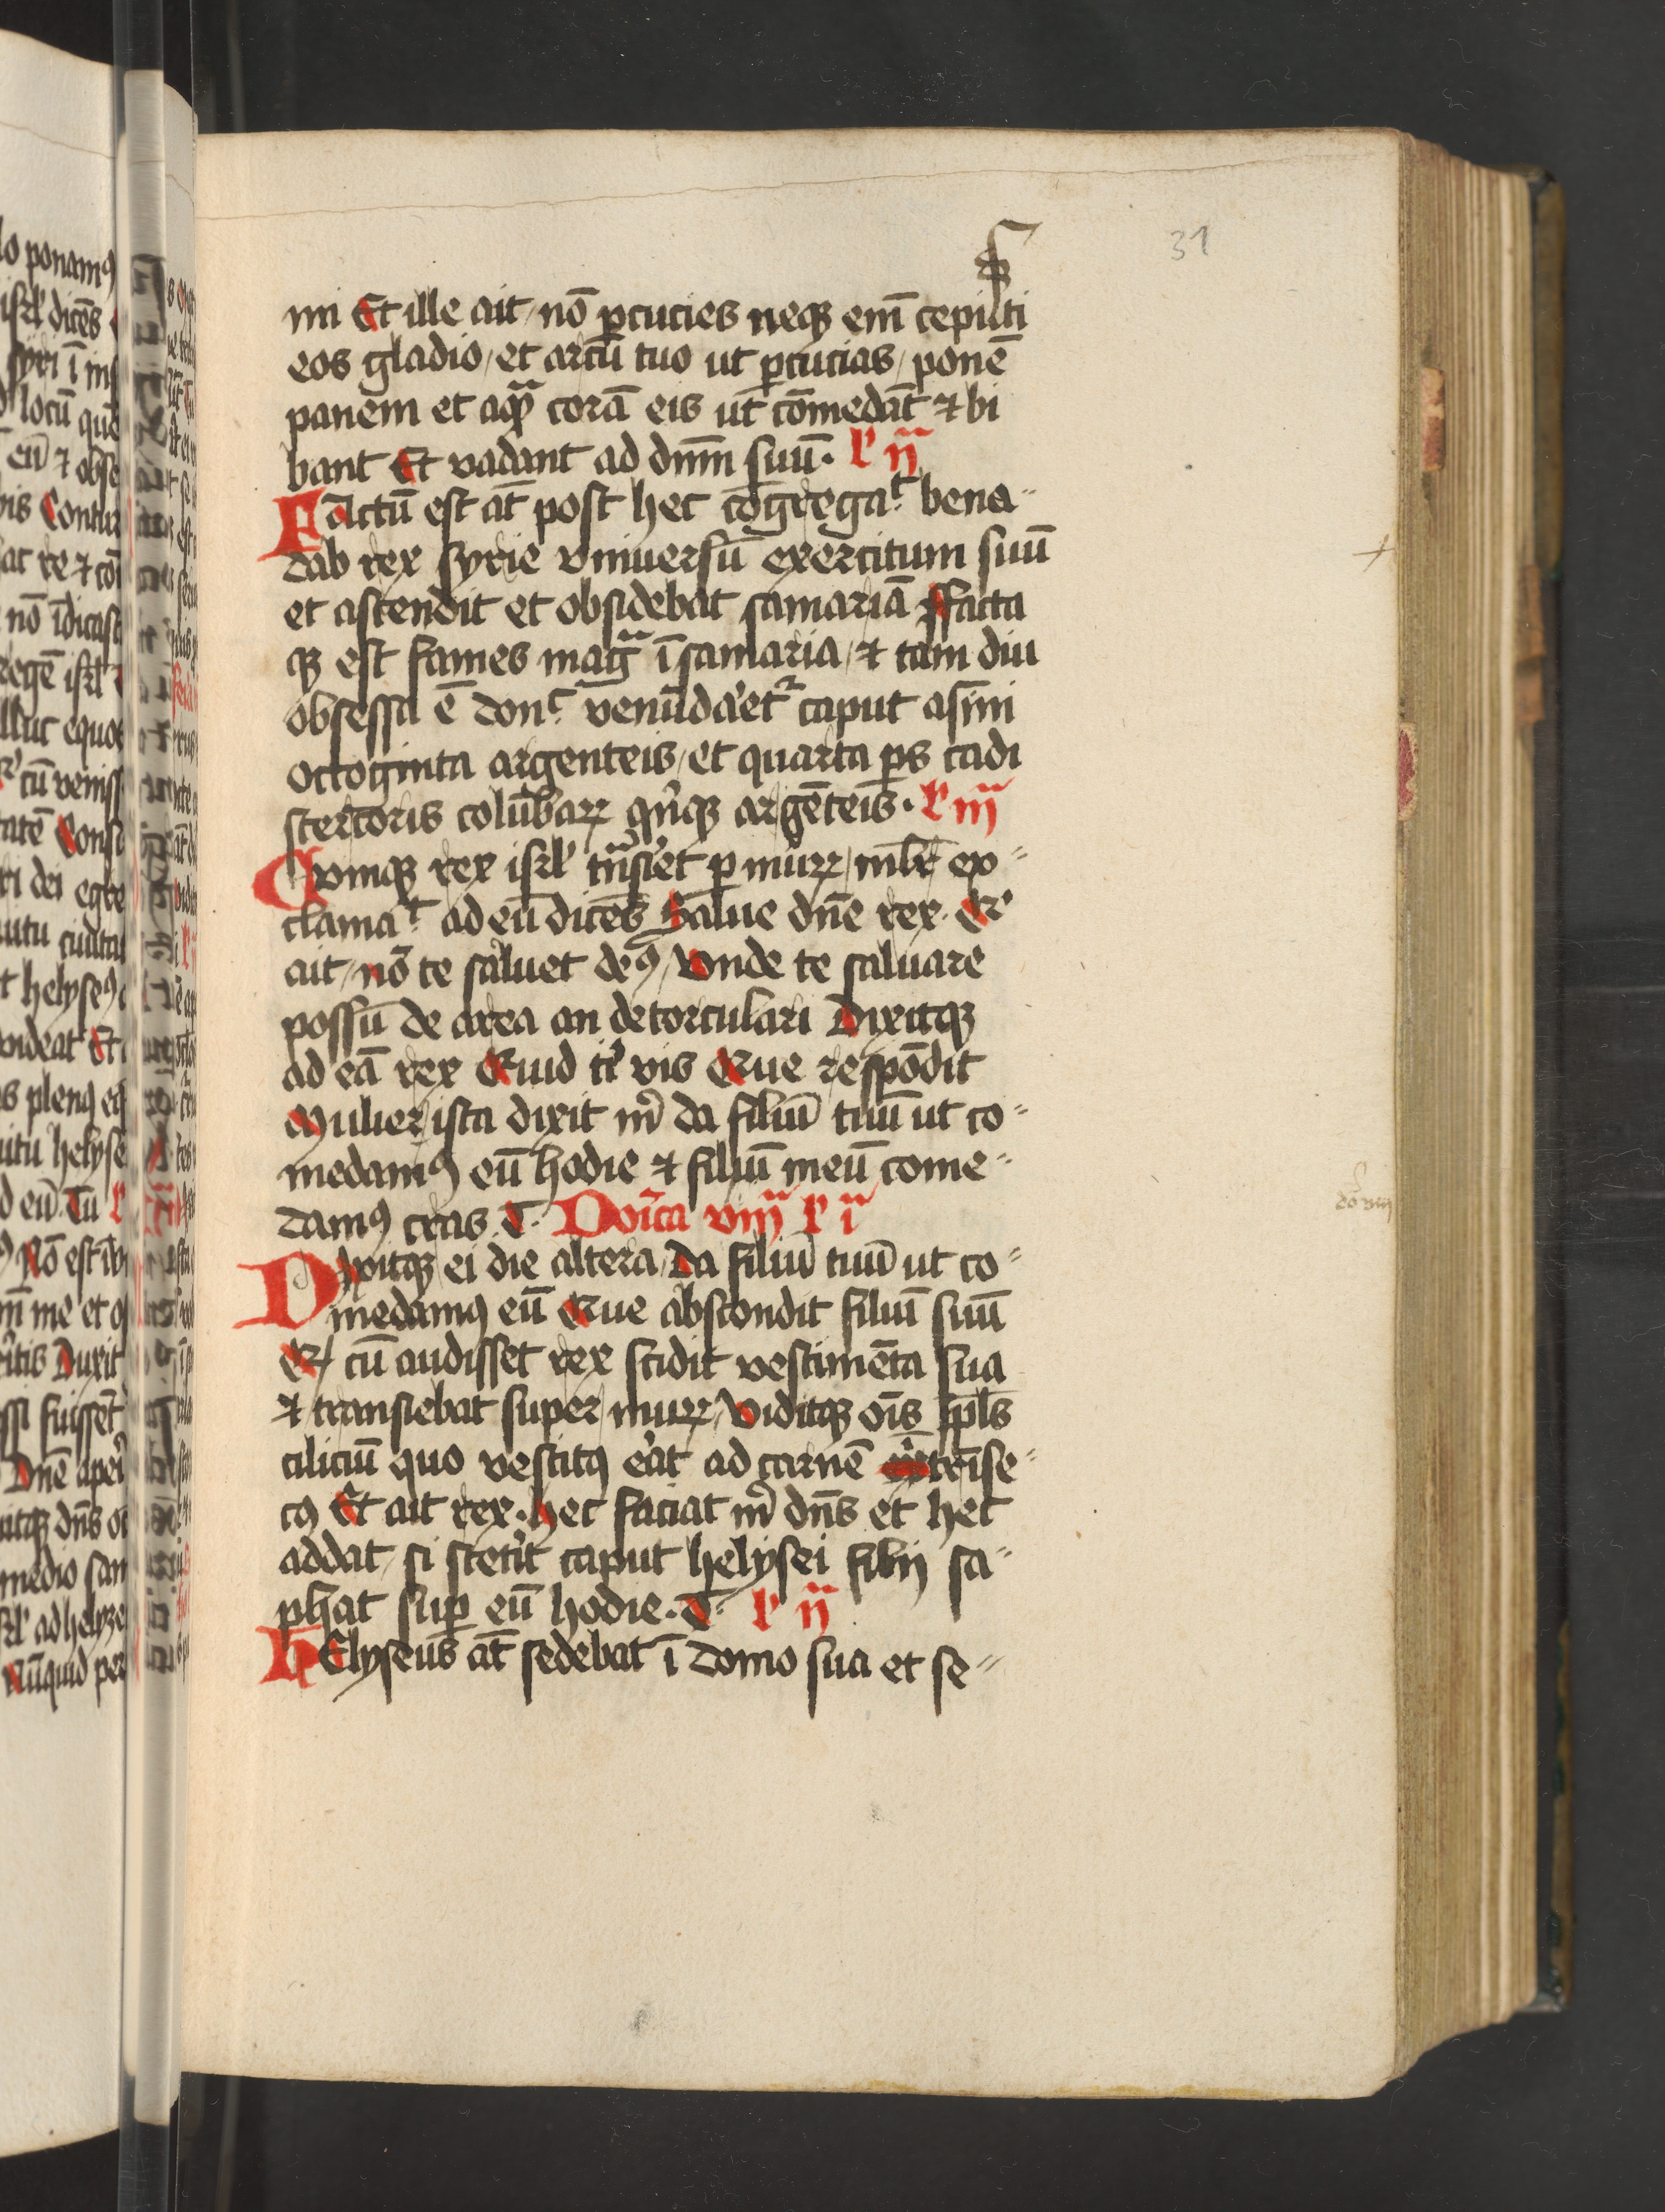 31
mi Et ille ait / nō ꝑcucies neqꝫ em̄ cepisti
eos gladio / et arcū tuo ut ꝑcucias / ponē
panem et aqua corā eis ut cōmedāt ⁊ bi
bant Et vadant ad dn̄m suū · l' ij
Factū est at̄ post hec cōgregat bena-
dab rex syrie vniuersū exercitum suū
et ascendit et obsidebat samariā ffacta
qꝫ est fames magᵃ ī samaria / ⁊ tam diu
obsessa ē donc venūdaret' caput asini
octoginta argenteis / et quarta ꝑs cadi
stercoris colūbaꝝ qinqꝫ argēteis · l' iij
Cvmqꝫ rex isrl' tnsiret ꝑ muꝝ / mlr̄ ex-
clamat ad eū dicēs Salue dn̄e rex · Qr
ait / nō te saluet deꝰ / vnde te saluare
possū de area an de torculari Dixitqꝫ
ad eā rex Quid ti vis Que respōdit
Mulier ista dixit m da filiū tuū ut co-
medamꝰ eū hodie ⁊ filiū meū come-
damꝰ cras T. Doīca viij l' i
Dixitqꝫ ei die altera / Da filiū tuū ut co-
medamꝰ eū Que abscondit filiū suū
Qd cū audisset rex scidit vestimēta sua
⁊ transiebat super muꝝ / viditqꝫ oīs ppls
ciliciū quo vestitꝰ erat ad carnē ītrīse-
cꝰ Et ait rex · hec faciat m dn̄s et hec
addat / si steterit caput helysei filij sa-
phat suꝑ eū hodie · T· l' ij
hElyseus at̄ sedebat ī domo sua et se-